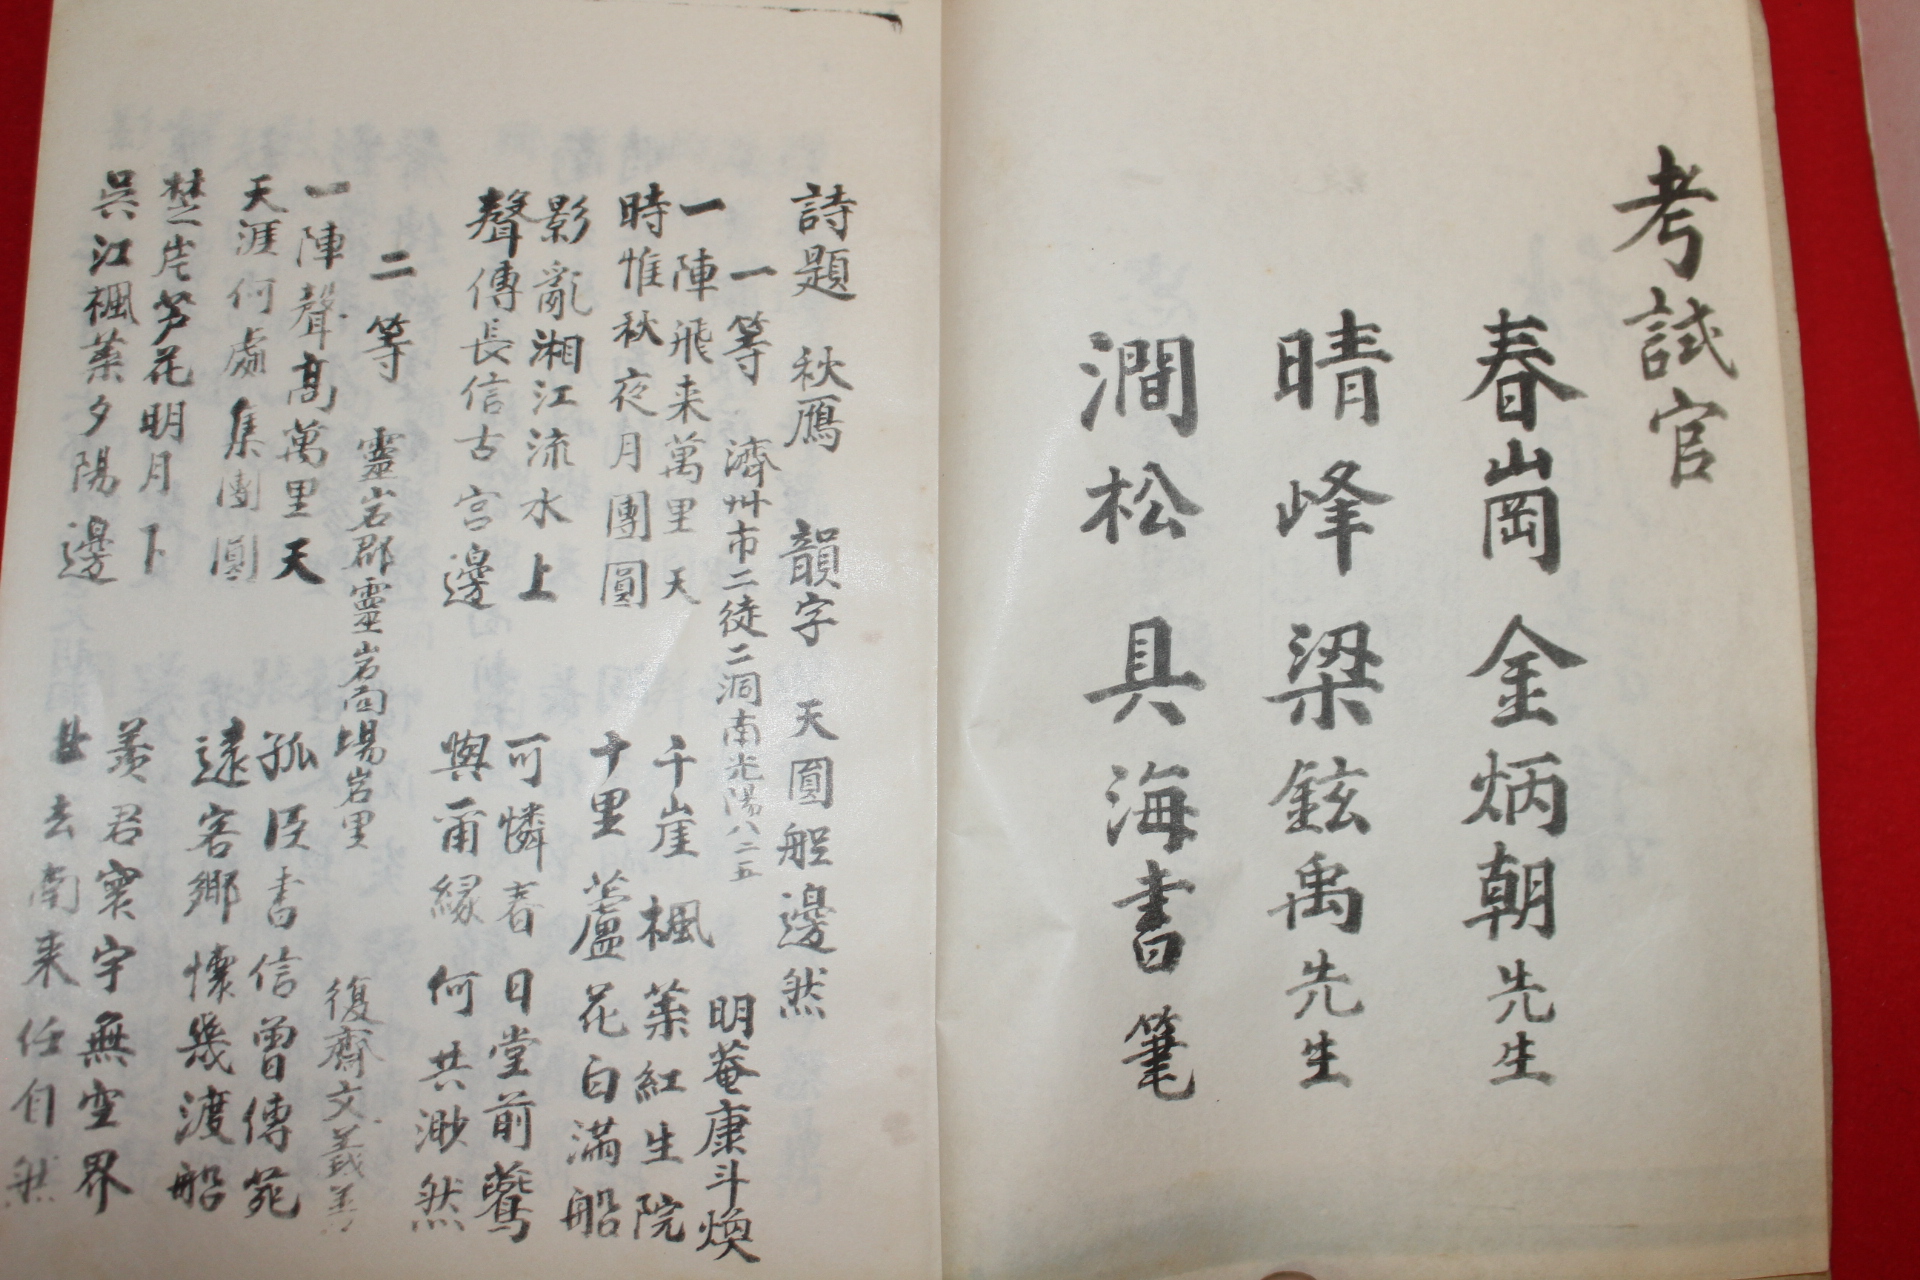 考試官
春崗 金炳朝先生
晴峰 梁鉉禹先生
澗松 具海書筆
詩題 秋鴈 韻字 天圓船邊然
一等 濟州市二徒二洞南光陽八二五 明菴康斗煥
一陣飛来萬里天 千崖楓葉紅生院
時惟秋夜月團圓 十里蘆花白滿船
影亂湘江流水上 可憐春日堂前鸎
聲傳長信古宮邊 與甭緣何共渺然
二等 靈岩郡靈岩面場岩里 復齋文義善
一陣聲高萬里天 孤臣書信曾傳苑
天涯何處集團圓 遠客鄉懷幾渡船
楚岸芦花明月下 羨君寰宇無空界
吳江楓葉夕陽邊 北去南来任自然